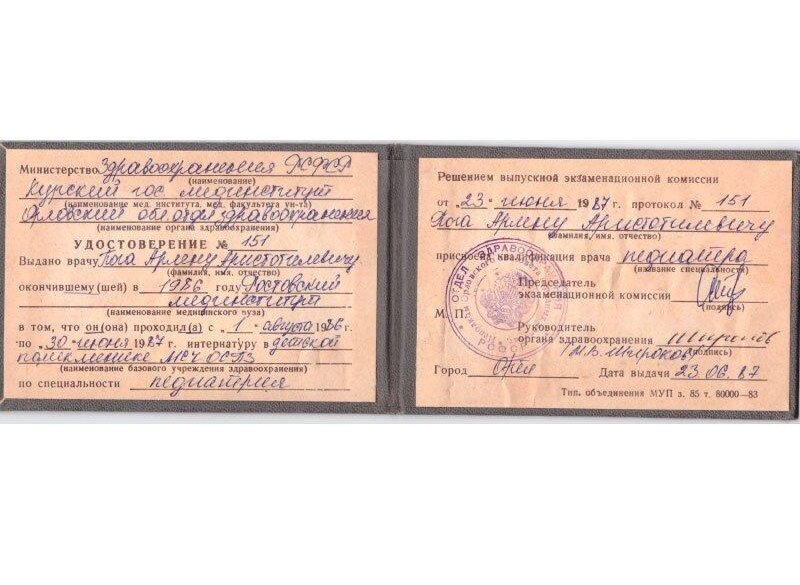 Министерство Здравоохранения РСФСР
(наименование)
Курский гос мединститут
(наименование мед. института, мед. факультета ун-та)
Орловский обл отдел здравоохранения
(наименование органа здравоохранения)
УДОСТОВЕРЕНИЕ № 151
Выдано врачу Пога Армену Аристотилевичу
(фамилия, имя, отчество)
окончившему(шей) в 1986 году Ростовский
мединститут
(наименование медицинского вуза)
в том, что он(она) проходил(а) с „1“ августа 1986 г.
по „30“ июня 1987 г. интернатуру в детской
поликлинике МСЧ ОСПЗ
(наименование базового учреждения здравоохранения)
по специальности педиатрия
Решением выпускной экзаменационной комиссии
от „23“ июня 1987 г. протокол № 151
Пога Армену Аристотилевичу
(фамилия, имя, отчество)
присвоена квалификация врача педиатра
(название специальности)
Председатель
экзаменационной комиссии
(подпись)
М. П.
Руководитель
органа здравоохранения Широков
/М.В. Широков/ (подпись)
Город Орёл Дата выдачи 23.06.87
Тип. объединения МУП з. 85 т. 80000—83
ОТДЕЛ ЗДРАВООХРАНЕНИЯ